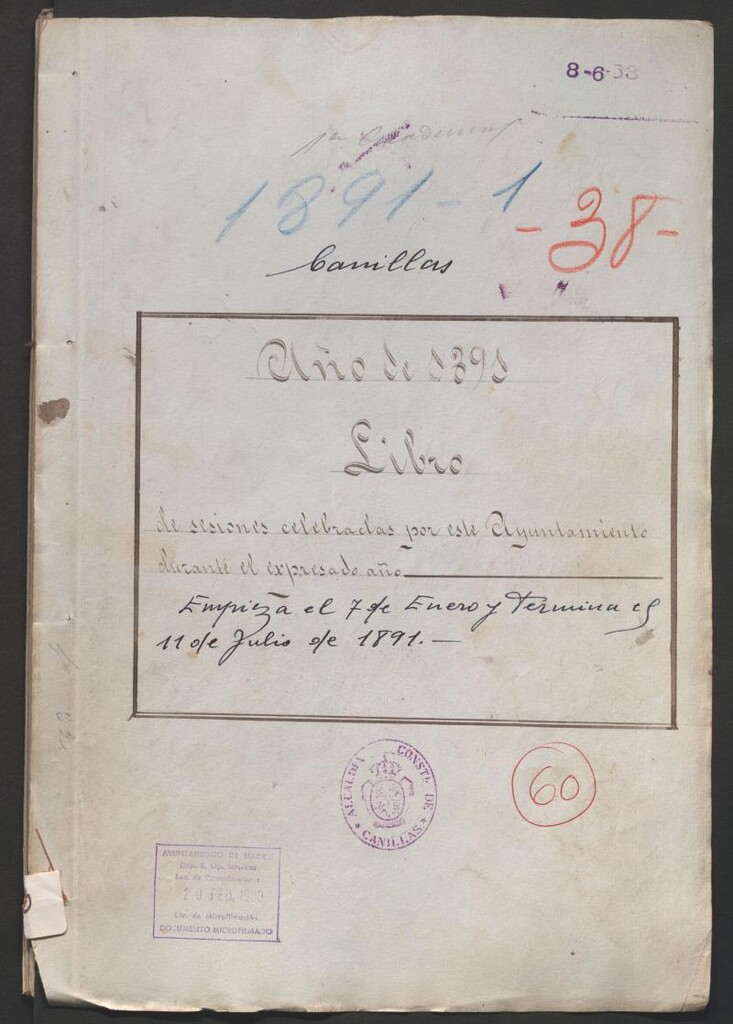 8-6-33
1891-1
-38-
Canillas
Año de 1891
Libro
de sesiones celebradas por este Ayuntamiento
durante el expresado año
Empieza el 7 de Enero y Termina el
11 de Julio de 1891.-
ALCALDIA CONSTL. DE
* CANILLAS. *
60
AYUNTAMIENTO DE MADRID
29 FEB.
DOCUMENTO MICROFILMADO